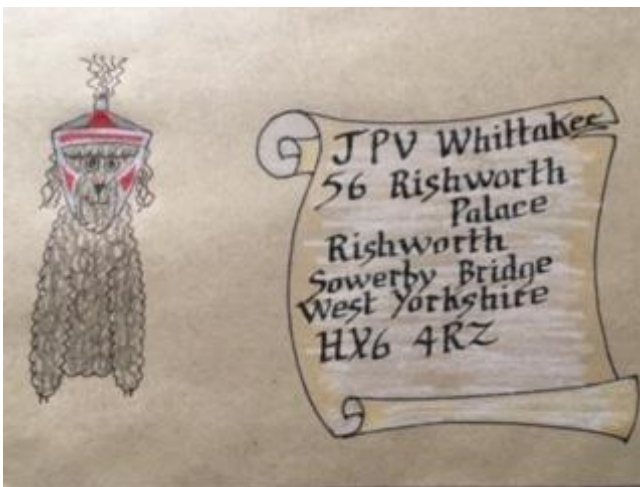 JPV Whittaker
56 Rishworth
Palace
Rishworth
Sowerby Bridge
West Yorkshire
HX6 4RZ